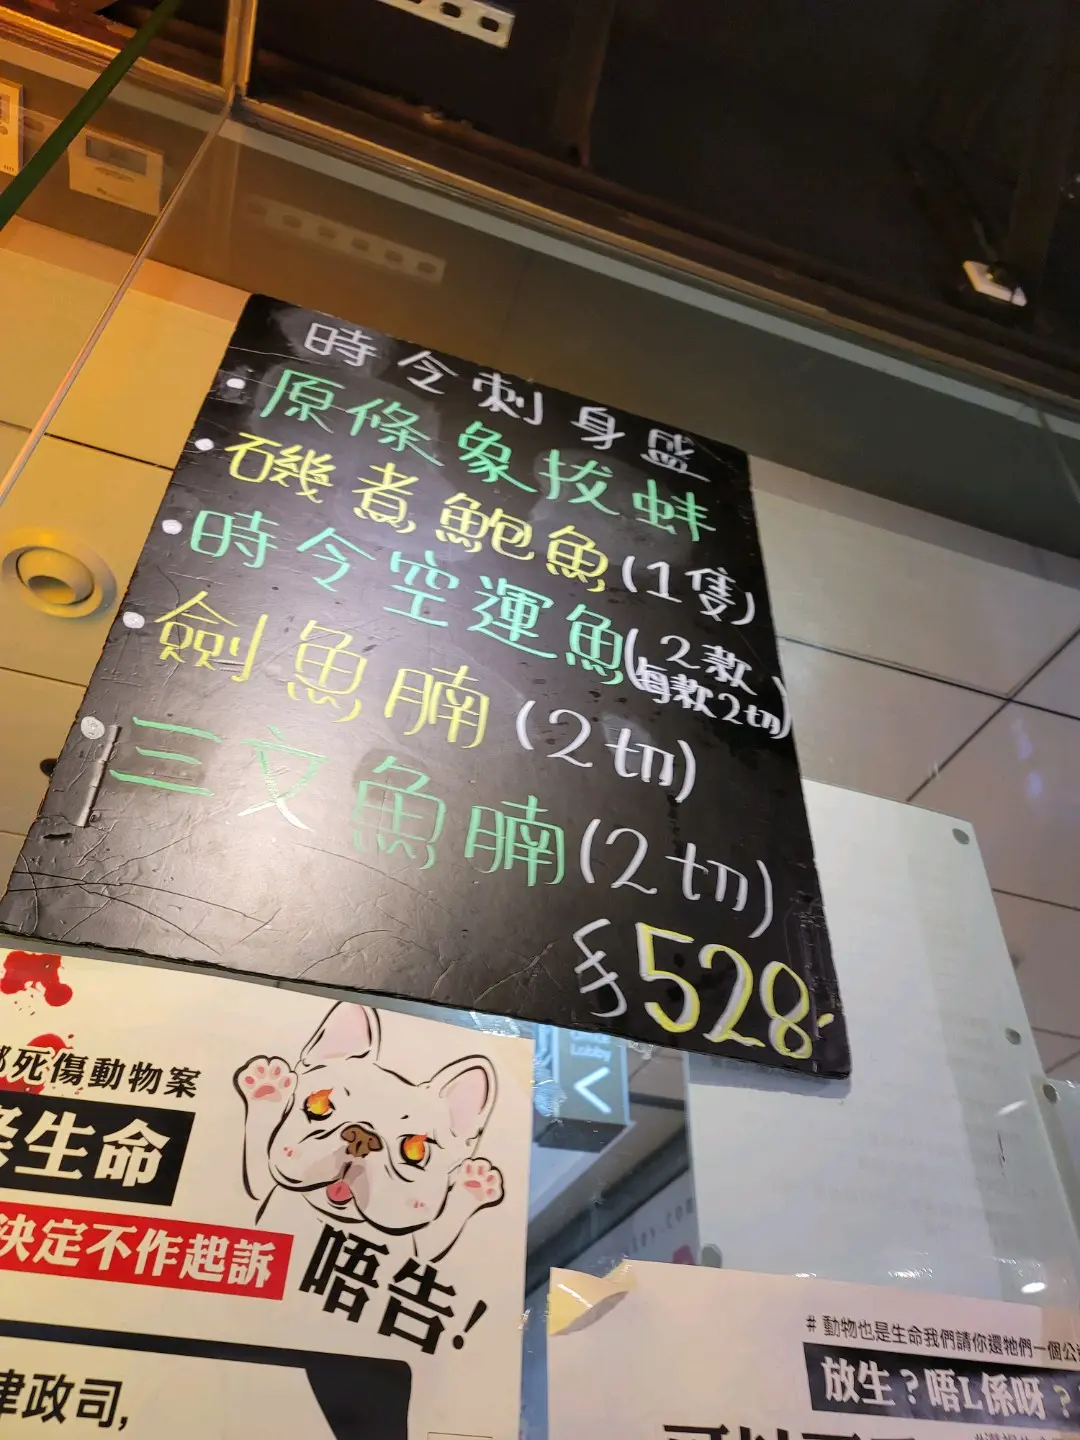 時令刺身盛
• 原條象拔蚌
• 磯煮鮑魚(1隻)
• 時令空運魚(2款 每款2切)
• 劍魚腩(2切)
• 三文魚腩(2切)
$528-
Lobby
<
死傷動物案
生命
決定不作起訴
唔告!
律政司,
# 動物也是生命我們請你還牠們一個公
放生?唔L係呀?